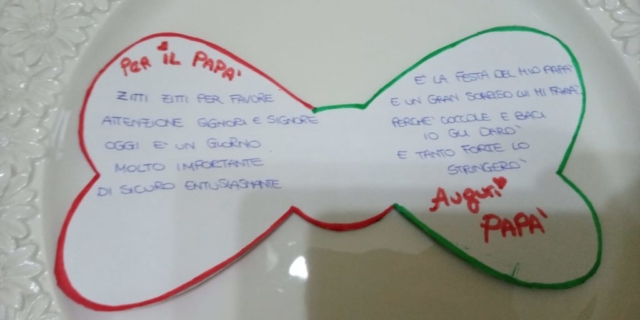 PER IL PAPA'
ZITTI ZITTI PER FAVORE
ATTENZIONE SIGNORI E SIGNORE
OGGI E' UN GIORNO
MOLTO IMPORTANTE
DI SICURO ENTUSIASMANTE
E' LA FESTA DEL MIO PAPA'
E UN GRAN SORRISO LUI MI FARA'
PERCHE' COCCOLE E BACI
IO GLI DARO'
E TANTO FORTE LO
STRINGERO'
Auguri
PAPA'